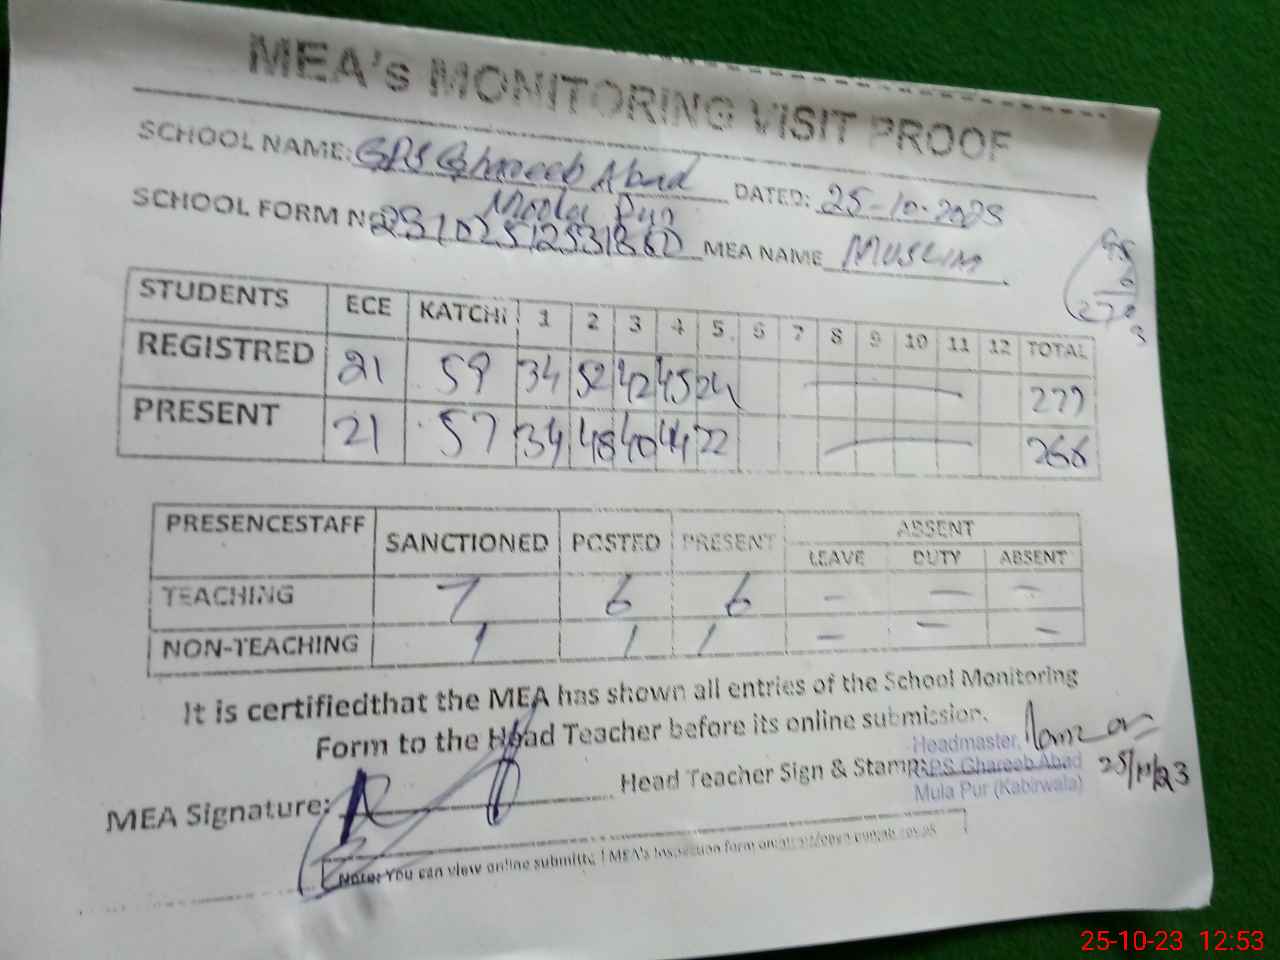 MEA's MONITORING VISIT PROOF
SCHOOL NAME: GPS Ghareeb Abad DATED: 25-10-2023
Moola Pur
SCHOOL FORM NO MEA NAME MUSLIM
STUDENTS ECE KATCHI 1 2 3 4 5 6 7 8 9 10 11 12 TOTAL
REGISTRED 21 59 34 52 42 45 24 277
PRESENT 21 57 34 48 40 44 22 266
PRESENCESTAFF SANCTIONED POSTED PRESENT ABSENT
LEAVE DUTY ABSENT
TEACHING 7 6 6 - - -
NON-TEACHING 1 1 1 - - -
It is certifiedthat the MEA has shown all entries of the School Monitoring
Form to the Head Teacher before its online submission.
Headmaster,
MEA Signature: Head Teacher Sign & Stamp: GPS Ghareeb Abad
Mula Pur (Kabirwala)
25/10/23
Note: You can view online submitted MEA's Inspection form on
25-10-23 12:53